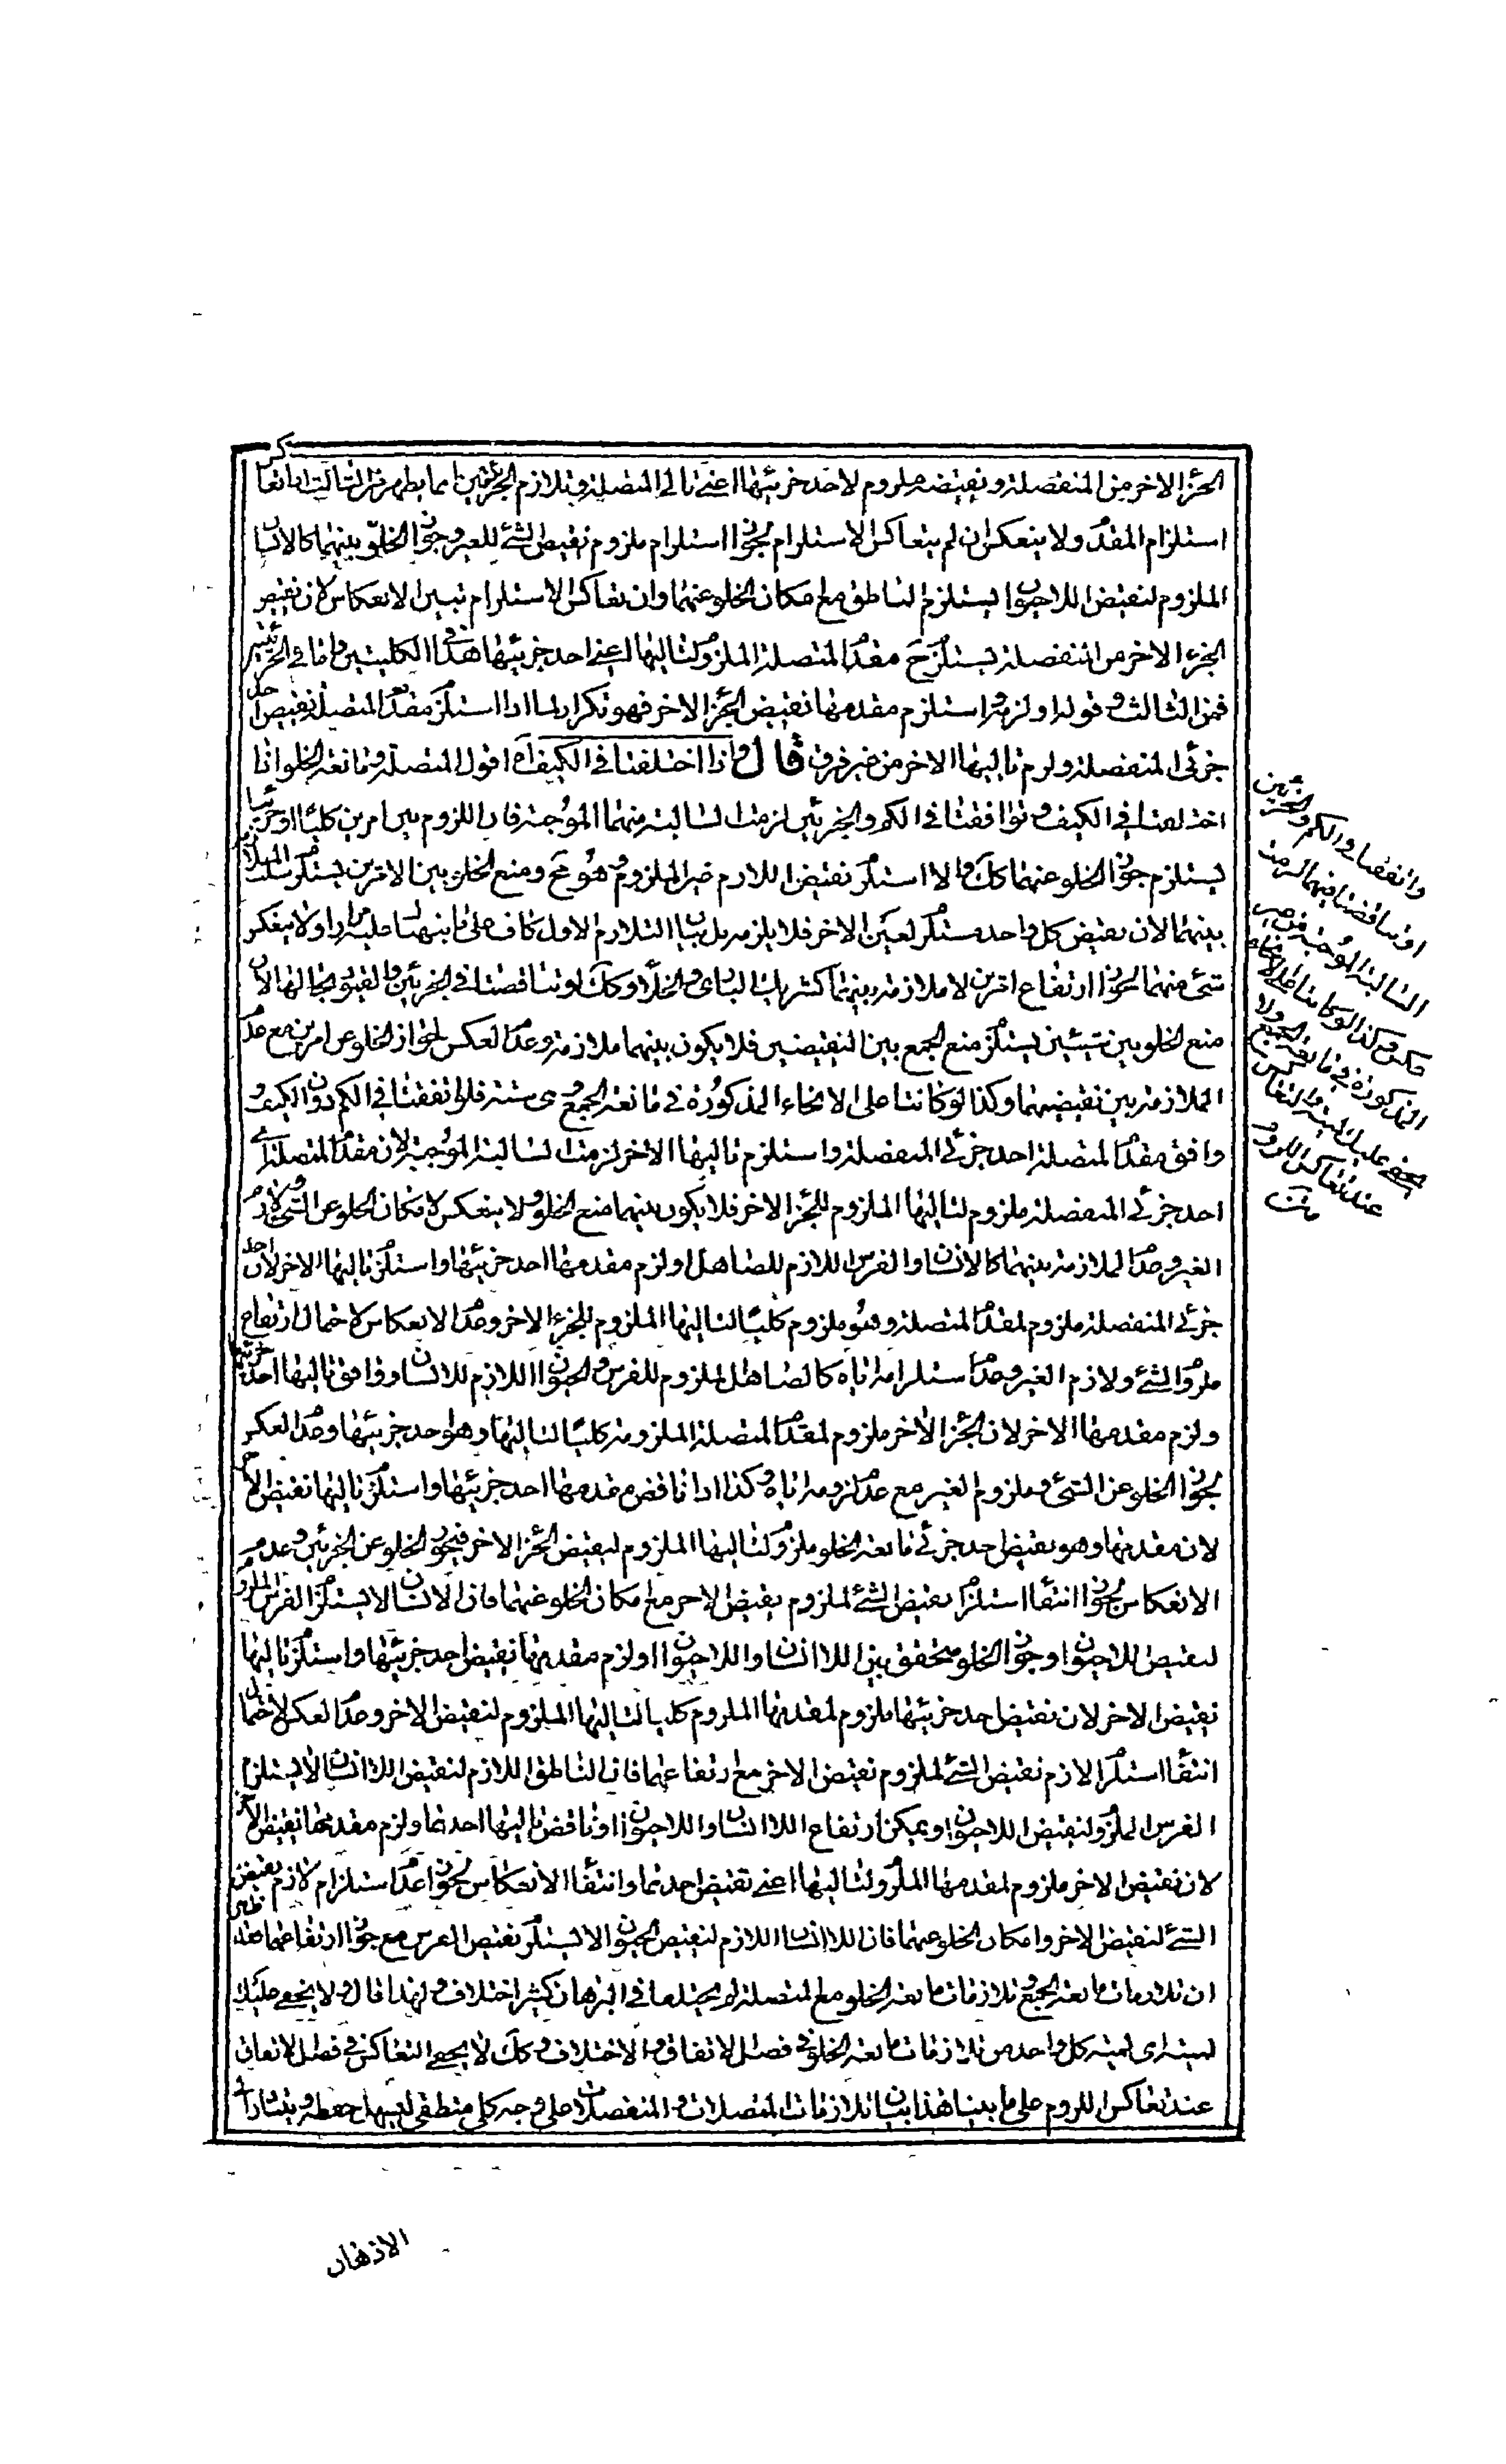 الجزء الاخر من المنفصلة ونقيضه ملزوم لاحد جزئيها اعنى تالى المتصلة وتلازم الجزئيتين انما يظهر من الثالث
استلزام المقدم ولا ينعكس ان لم يتعاكس الاستلزام لجواز استلزام ملزوم نقيض الشئ للغير وجواز الخلو بينهما كالانسان
الملزوم لنقيض اللاحيوان يستلزم الناطق مع امكان الخلو عنهما وان تعاكس الاستلزام تبين الانعكاس لان نقيض
الجزء الاخر من المنفصلة يستلزم ح مقدم المتصلة الملزوم لتاليها اعنى احد جزئيها هذا فى الكليتين واما فى الجزئيتين
فمن الثالث وقوله او لزم او استلزم مقدمها نقيض الجزء الاخر فهو تكرار لما اذا استلزم مقدم المتصلة نقيض احد
جزئى المنفصلة ولزم تاليها الاخر من غير فرق قال واذا اختلفتا فى الكيف اه اقول المتصلة ومانعة الخلو اذا
اختلفتا فى الكيف وتوافقتا فى الكم والجزئين لزمت السالبة منهما الموجبة فان اللزوم بين امرين كليا او جزئيا
يستلزم جواز الخلو عنهما كك والا استلزم نقيض اللازم غير الملزوم وهو مح ومنع الخلو بين الامرين يستلزم سلب الملازمة
بينهما لان نقيض كل واحد مستلزم لعين الاخر فلا يلزمه بل بيان التلازم الاول كاف على ما نبهنا عليه مرارا ولا ينعكس
شئ منهما لجواز ارتفاع امرين لا ملازمة بينهما كشريك البارى والخلاء وكك لو تناقضتا فى الجزئين والقيود بحالها لان
منع الخلو بين شيئين يستلزم منع الجمع بين النقيضين فلا يكون بينهما ملازمة وعدم العكس لجواز الخلو عن امرين مع عدم
الملازمة بين نقيضيهما وكذا لو كانتا على الانحاء المذكورة فى مانعة الجمع ستة فلو اتفقتا فى الكم دون الكيف
وافق مقدم المتصلة احد جزئى المنفصلة واستلزم تاليها الاخر لزمت السالبة الموجبة لان مقدم المتصلة اى
احد جزئى المنفصلة ملزوم لتاليها الملزوم للجزء الاخر فلا يكون بينهما منع الخلو ولا ينعكس لامكان الخلو عن الشئ ولازم
الغير وعدم الملازمة بينهما كالانسان والفرس اللازم للصاهل او لزم مقدمها احد جزئيها واستلزم تاليها الاخر لان احد
جزئى المنفصلة ملزوم لمقدم المتصلة وهو ملزوم كليا لتاليها الملزوم للجزء الاخر وعدم الانعكاس لاحتمال ارتفاع
ملزوم الشئ ولازم الغير وعدم استلزامه اياه كالصاهل الملزوم للفرس والحيوان اللازم للانسان او وافق تاليها احد جزئيها
ولزم مقدمها الاخر لان الجزء الاخر ملزوم لمقدم المتصلة الملزومة كليا لتاليها وهو احد جزئيها وعدم العكس
لجواز الخلو عن الشئ وملزوم الغير مع عدم لزومه اياه وكذا اذا ناقض مقدمها احد جزئيها واستلزم تاليها نقيض الاخر
لان مقدمها وهو نقيض احد جزئى مانعة الخلو ملزوم لتاليها الملزوم لنقيض الجزء الاخر فيجوز الخلو عن الجزئين وعدم
الانعكاس لجواز انتفاء استلزام نقيض الشئ الملزوم نقيض الاخر مع امكان الخلو عنهما فان الانسان لا يستلزم الفرس الملزوم
لنقيض اللاحيوان وجواز الخلو متحقق بين اللاانسان واللاحيوان او لزم مقدمها نقيض احد جزئيها واستلزم تاليها
نقيض الاخر لان نقيض احد جزئيها ملزوم لمقدمها الملزوم كليا لتاليها الملزوم لنقيض الاخر وعدم العكس لاحتمال
انتفاء استلزام لازم نقيض الشئ الملزوم نقيض الاخر مع ارتفاعهما فان الناطق اللازم لنقيض اللاانسان لا يستلزم
الفرس الملزوم لنقيض اللاحيوان ويمكن ارتفاع اللاانسان واللاحيوان او ناقض تاليها احدهما ولزم مقدمها نقيض الاخر
لان نقيض الاخر ملزوم لمقدمها الملزوم لتاليها اعنى نقيض احدهما وانتفاء الانعكاس لجواز عدم استلزام لازم نقيض
الشئ لنقيض الاخر وامكان الخلو عنهما فان اللاانسان اللازم لنقيض الحيوان لا يستلزم نقيض الفرس مع جواز ارتفاعهما فقد ظهر
ان تلازمات مانعة الجمع وتلازمات مانعة الخلو مع المتصلة لم يختلفا فى البرهان كثير اختلاف ولهذا قال ولا يخفى عليك
لميته اى لمية كل واحد من تلازمات مانعة الخلو فى فصل الاتفاق والاختلاف وكك لا يخفى التعاكس فى فصل الاتفاق
عند تعاكس اللزوم على ما بينا هذا بيان تلازمات المتصلات والمنفصلات على وجه كلى منطقى
واتفقتا فى الكم والجزئين
او تناقضتا فيهما لزمت
السالبة الموجبة من غير
عكس وكذا لو كانتا على الانحاء
المذكورة فى مانعة الجمع ولا
يخفى عليك لميته والتعاكس
عند تعاكس اللزوم
متن
الاذهان